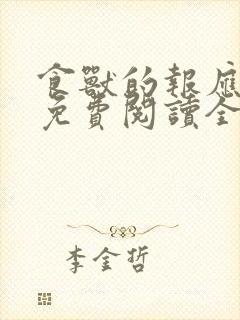 食獸的報應
免費閱讀全
李金哲